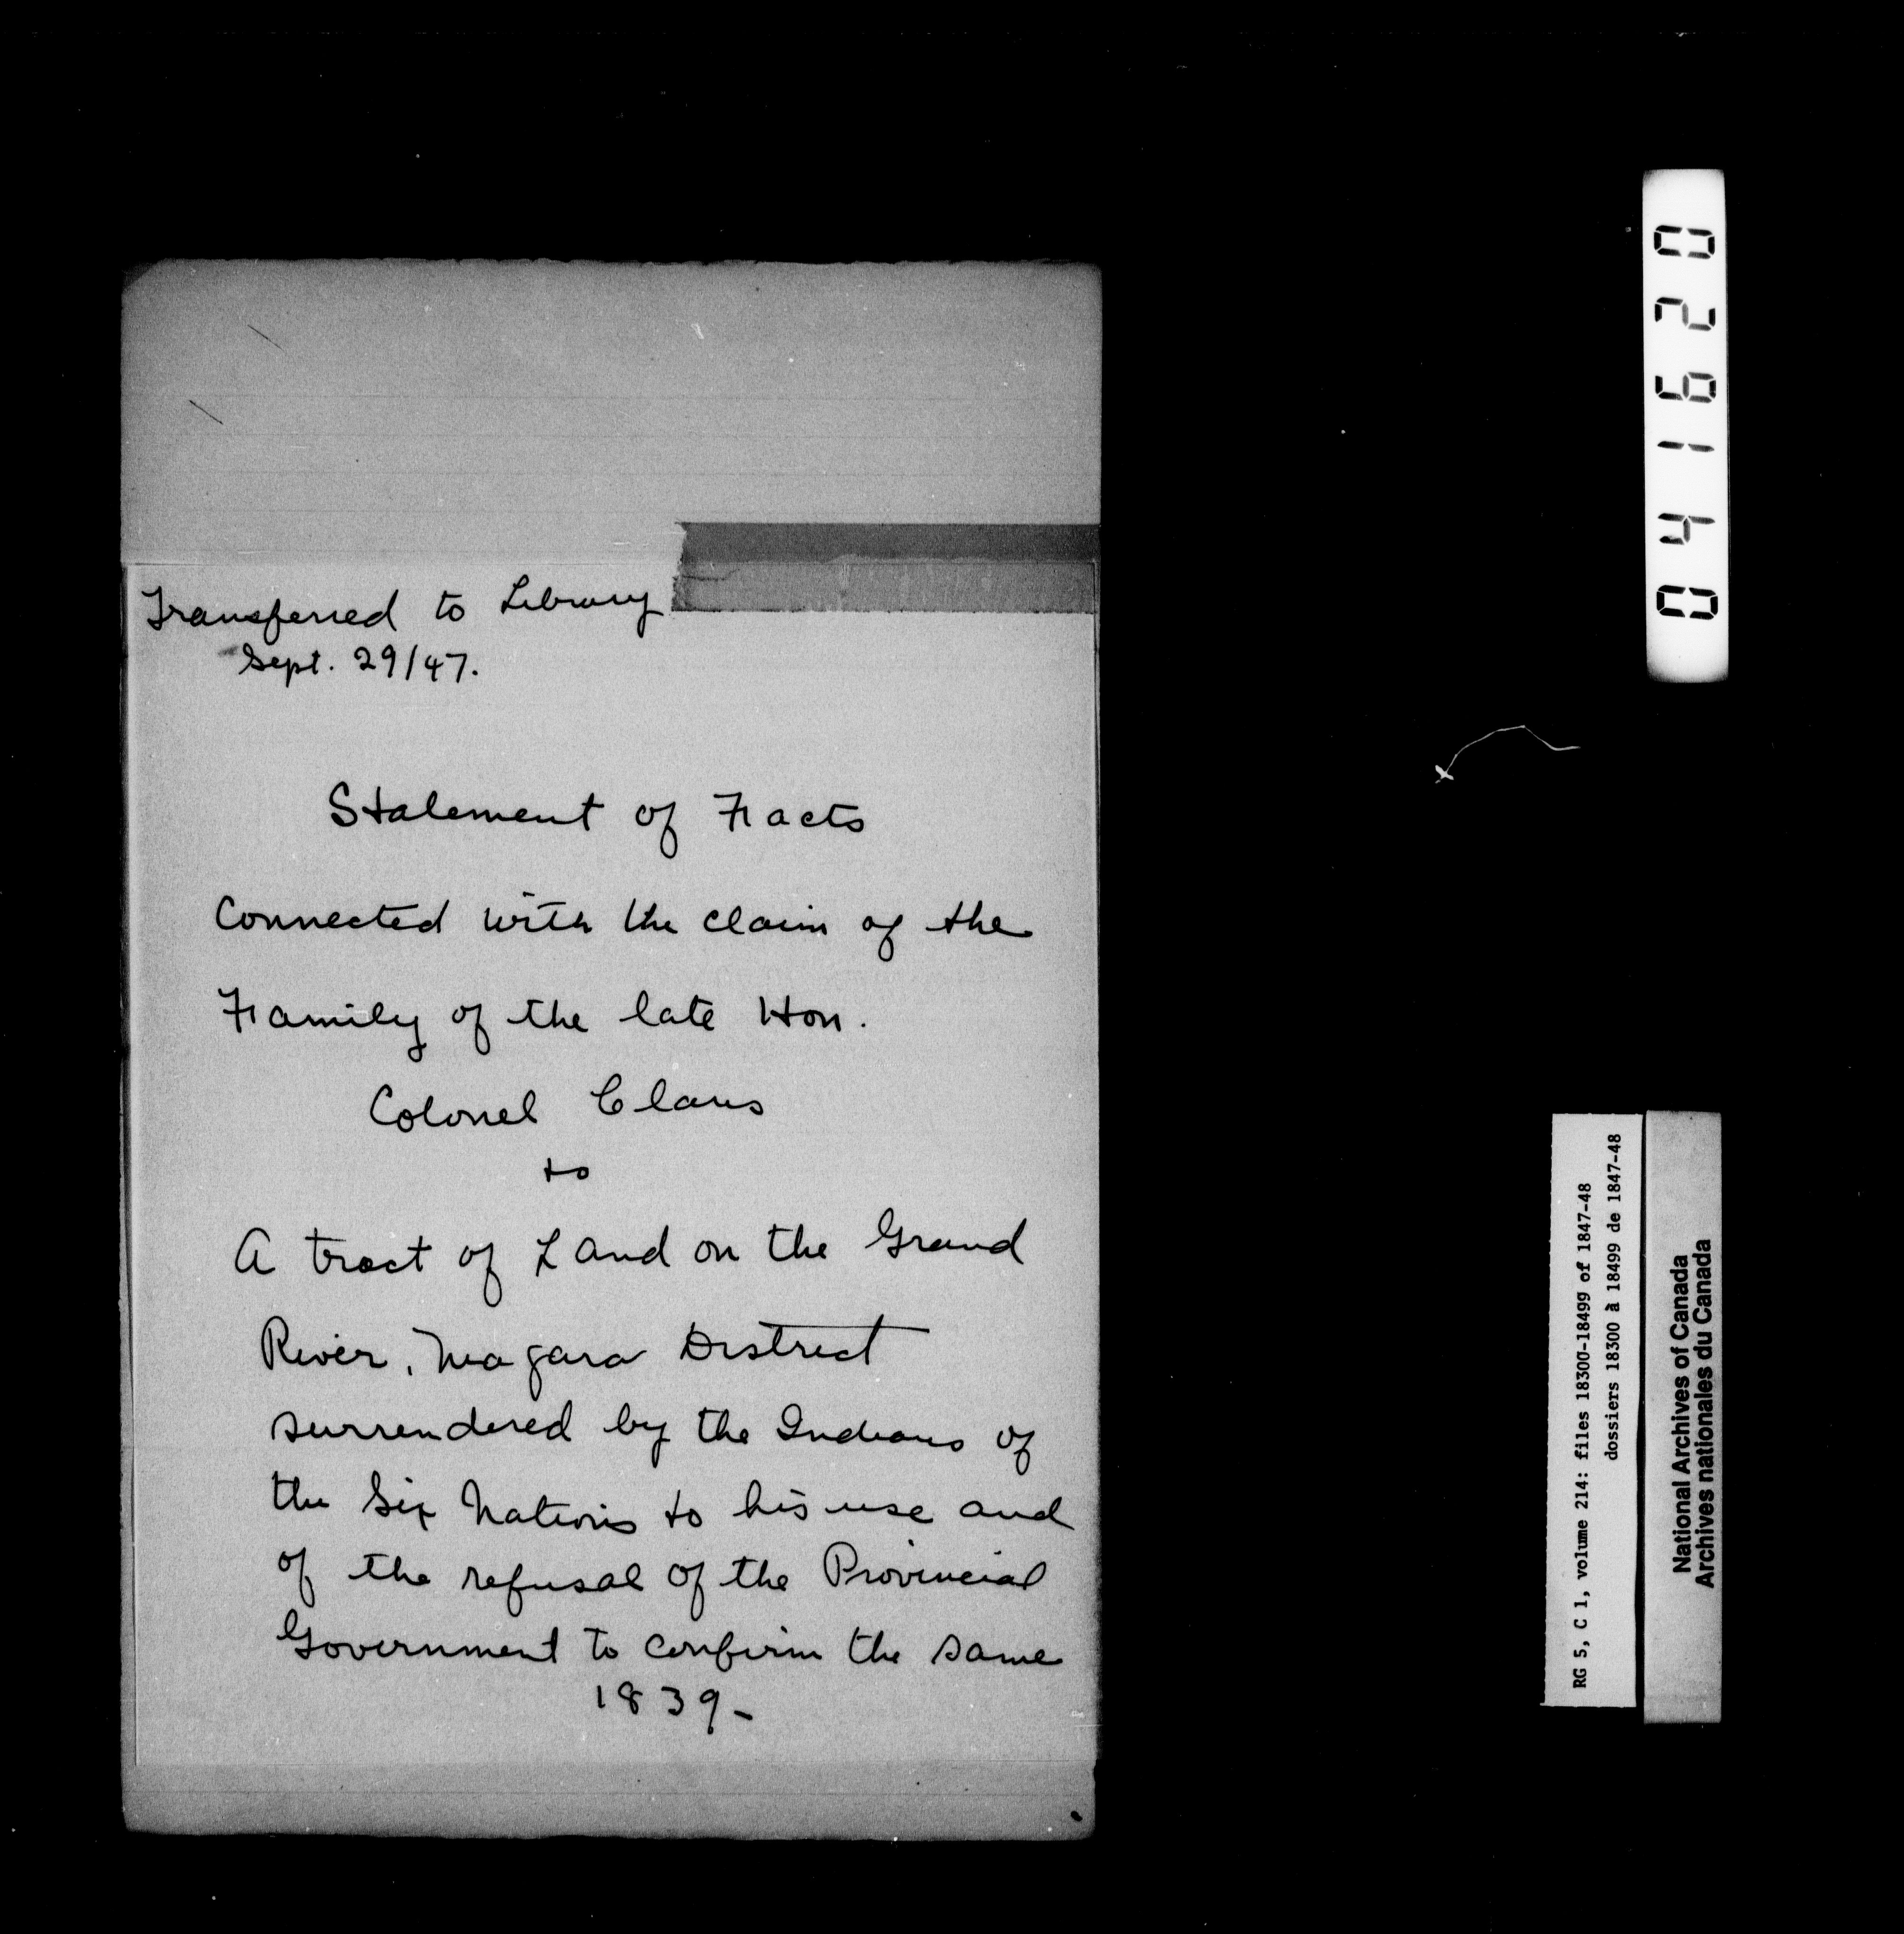 Transferred to Library
Sept. 29/47.
Statement of Facts
Connected with the claim of the
Family of the late Hon.
Colonel Claus
to
A tract of Land on the Grand
River, Niagara District
surrendered by the Indians of
the Six Nations to his use and
of the refusal of the Provincial
Government to confirm the same
1839-
041620
RG 5, C 1, volume 214: files 18300-18499 of 1847-48
dossiers 18300 à 18499 de 1847-48
National Archives of Canada
Archives nationales du Canada